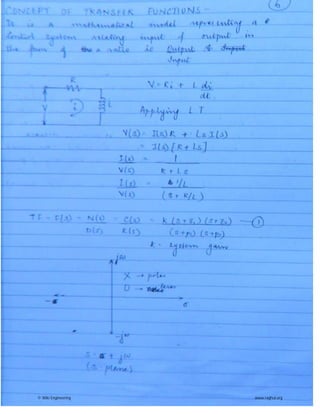 6
CONCEPT OF TRANSFER FUNCTIONS -
It is a mathematical model representing a
control system relating input & output in
the form of a ratio ie Output & Input
Input
R
V
i
L
V = Ri + L di
dt
Applying LT
V(s) = I(s)R + Ls I(s)
= I(s)[R + Ls]
I(s) = 1
V(s) R + Ls
I(s) = 1/L
V(s) (s + R/L)
TF = F(s) = N(s) = C(s) = k (s+z₁)(s+z₂) — 1
D(s) R(s) (s+p₁)(s+p₂)
k - system gain
jω
X → poles
O → zeros
-σ
σ
-jω
s = σ + jω
(s-plane)